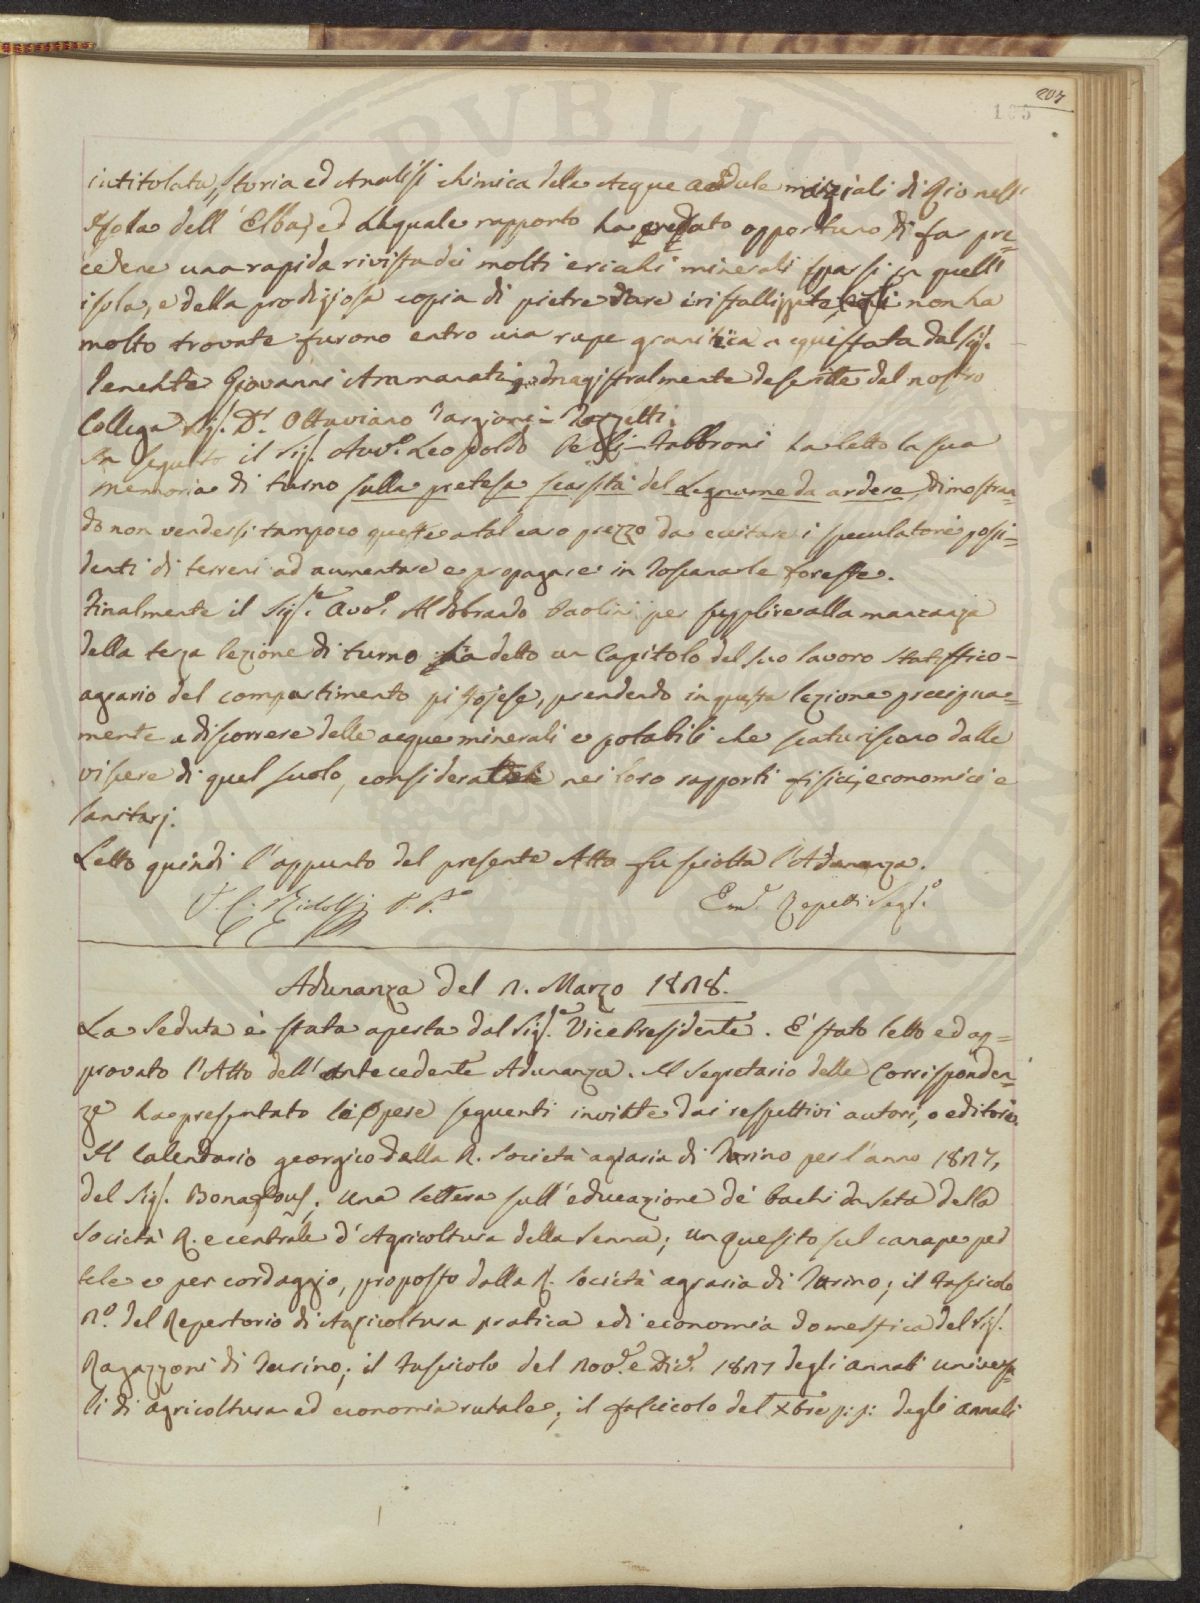 207
165
intitolata, Storia ed Analisi chimica delle Acque acidule marziali di Rio nell'
Isola dell' Elba, ed al quale rapporto ha credato opportuno di far pre=
cedere una rapida rivista dei molti e ricchi minerali sparsi in quell'
isola, e della prodigiosa copia di pietre dure cristallizzate, che non ha
molto trovate furono entro una rupe granitica acquistata dal Sig.
Tenente Giovanni Ammannati, e magistralmente descritte dal nostro
Collega Sig. Dr. Ottaviano Targioni-Tozzetti.
In seguito il Sig. Avv.o Leopoldo Pelli-Fabbroni ha letto la sua
memoria di turno sulla pretesa scarsità del Legname da ardere, dimostran=
do non vendersi tampoco questo a tal caro prezzo da eccitare i speculatori possi=
denti di terreni ad aumentare e propagare in Toscana le foreste.
Finalmente il Sig.e Avv.o Aldobrando Paolini per supplire alla mancanza
della terza lezione di turno ha detto un Capitolo del suo lavoro statistico-
agrario del compartimento pistojese, prendendo in questa lezione precipua=
mente a discorrere delle acque minerali e potabili che scaturiscono dalle
viscere di quel suolo, considerate nei loro rapporti fisici, economici e
sanitarj.
Letto quindi l'appunto del presente Atto fu sciolta l'Adunanza.
C. Ridolfi P. P.e
Em.l Repetti Seg.o
Adunanza del 2. Marzo 1828.
La Seduta è stata aperta dal Sig.e Vice Presidente. E' stato letto ed ap=
provato l'Atto dell'antecedente Adunanza. Il Segretario delle Corrisponden=
ze ha presentato le Opere seguenti inviate dai respettivi autori, o editori.
Il Calendario georgico della R. Società agraria di Torino per l'anno 1827,
del Sig. Bonafous; una lettera sull'educazione de' bachi da seta della
Società R. e centrale d'Agricoltura della Senna; un quesito sul canape per
tele e per cordaggio, proposto dalla R. Società agraria di Torino; il Fascicolo
2.o del Repertorio di Agricoltura pratica e di economia domestica del Sig.
Ragazzoni di Torino; il Fascicolo del Nov.e e Dic.e 1827 degli annali universa=
li di agricoltura ed economia rurale; il fascicolo del Xbre p:p: degli annali